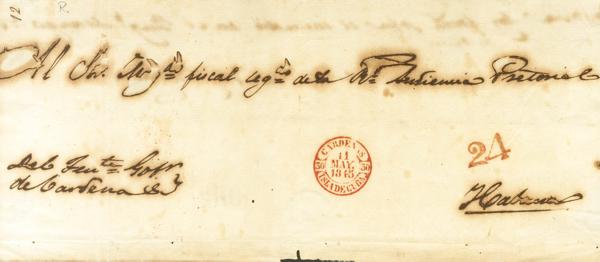 12 R.
Al Sr. fiscal de la Rl. Audiencia Pretorial
Del Tente. Gobr.
de Cardenas
CARDENAS
11
MAY.
1845
ISLA DE CUBA
24
Habana